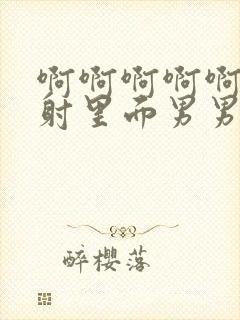 啊啊啊啊啊
射里面男男
醉樱落